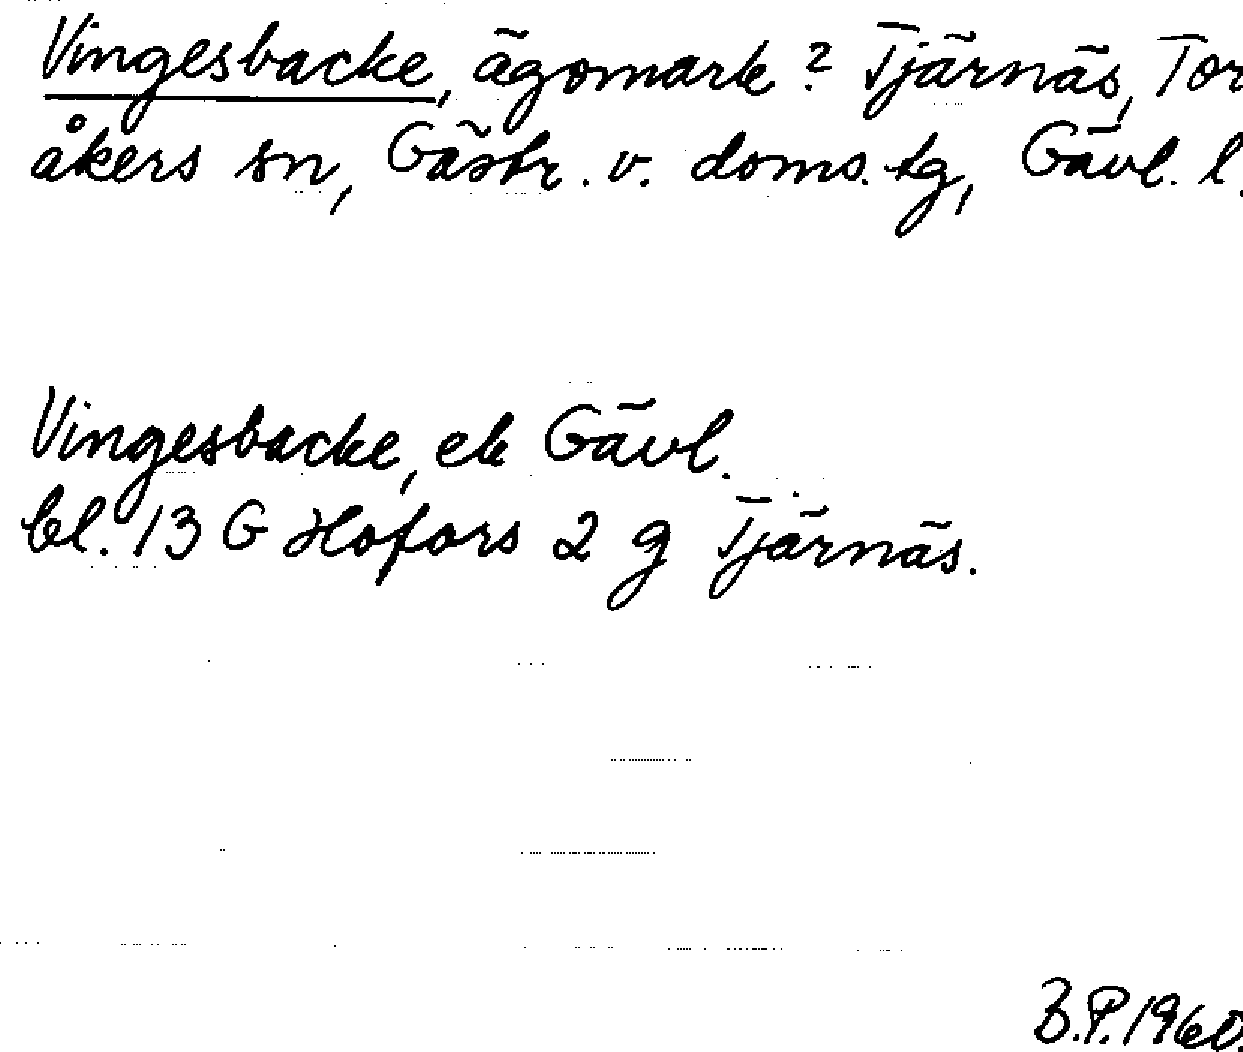 Vingesbacke, ägomark? Tjärnäs, Tor
åkers sn, Gästr. v. doms. tg, Gävl. l.
Vingesbacke, ek Gävl.
bl. 13 G Hofors 2 g Tjärnäs.
B.P. 1960.